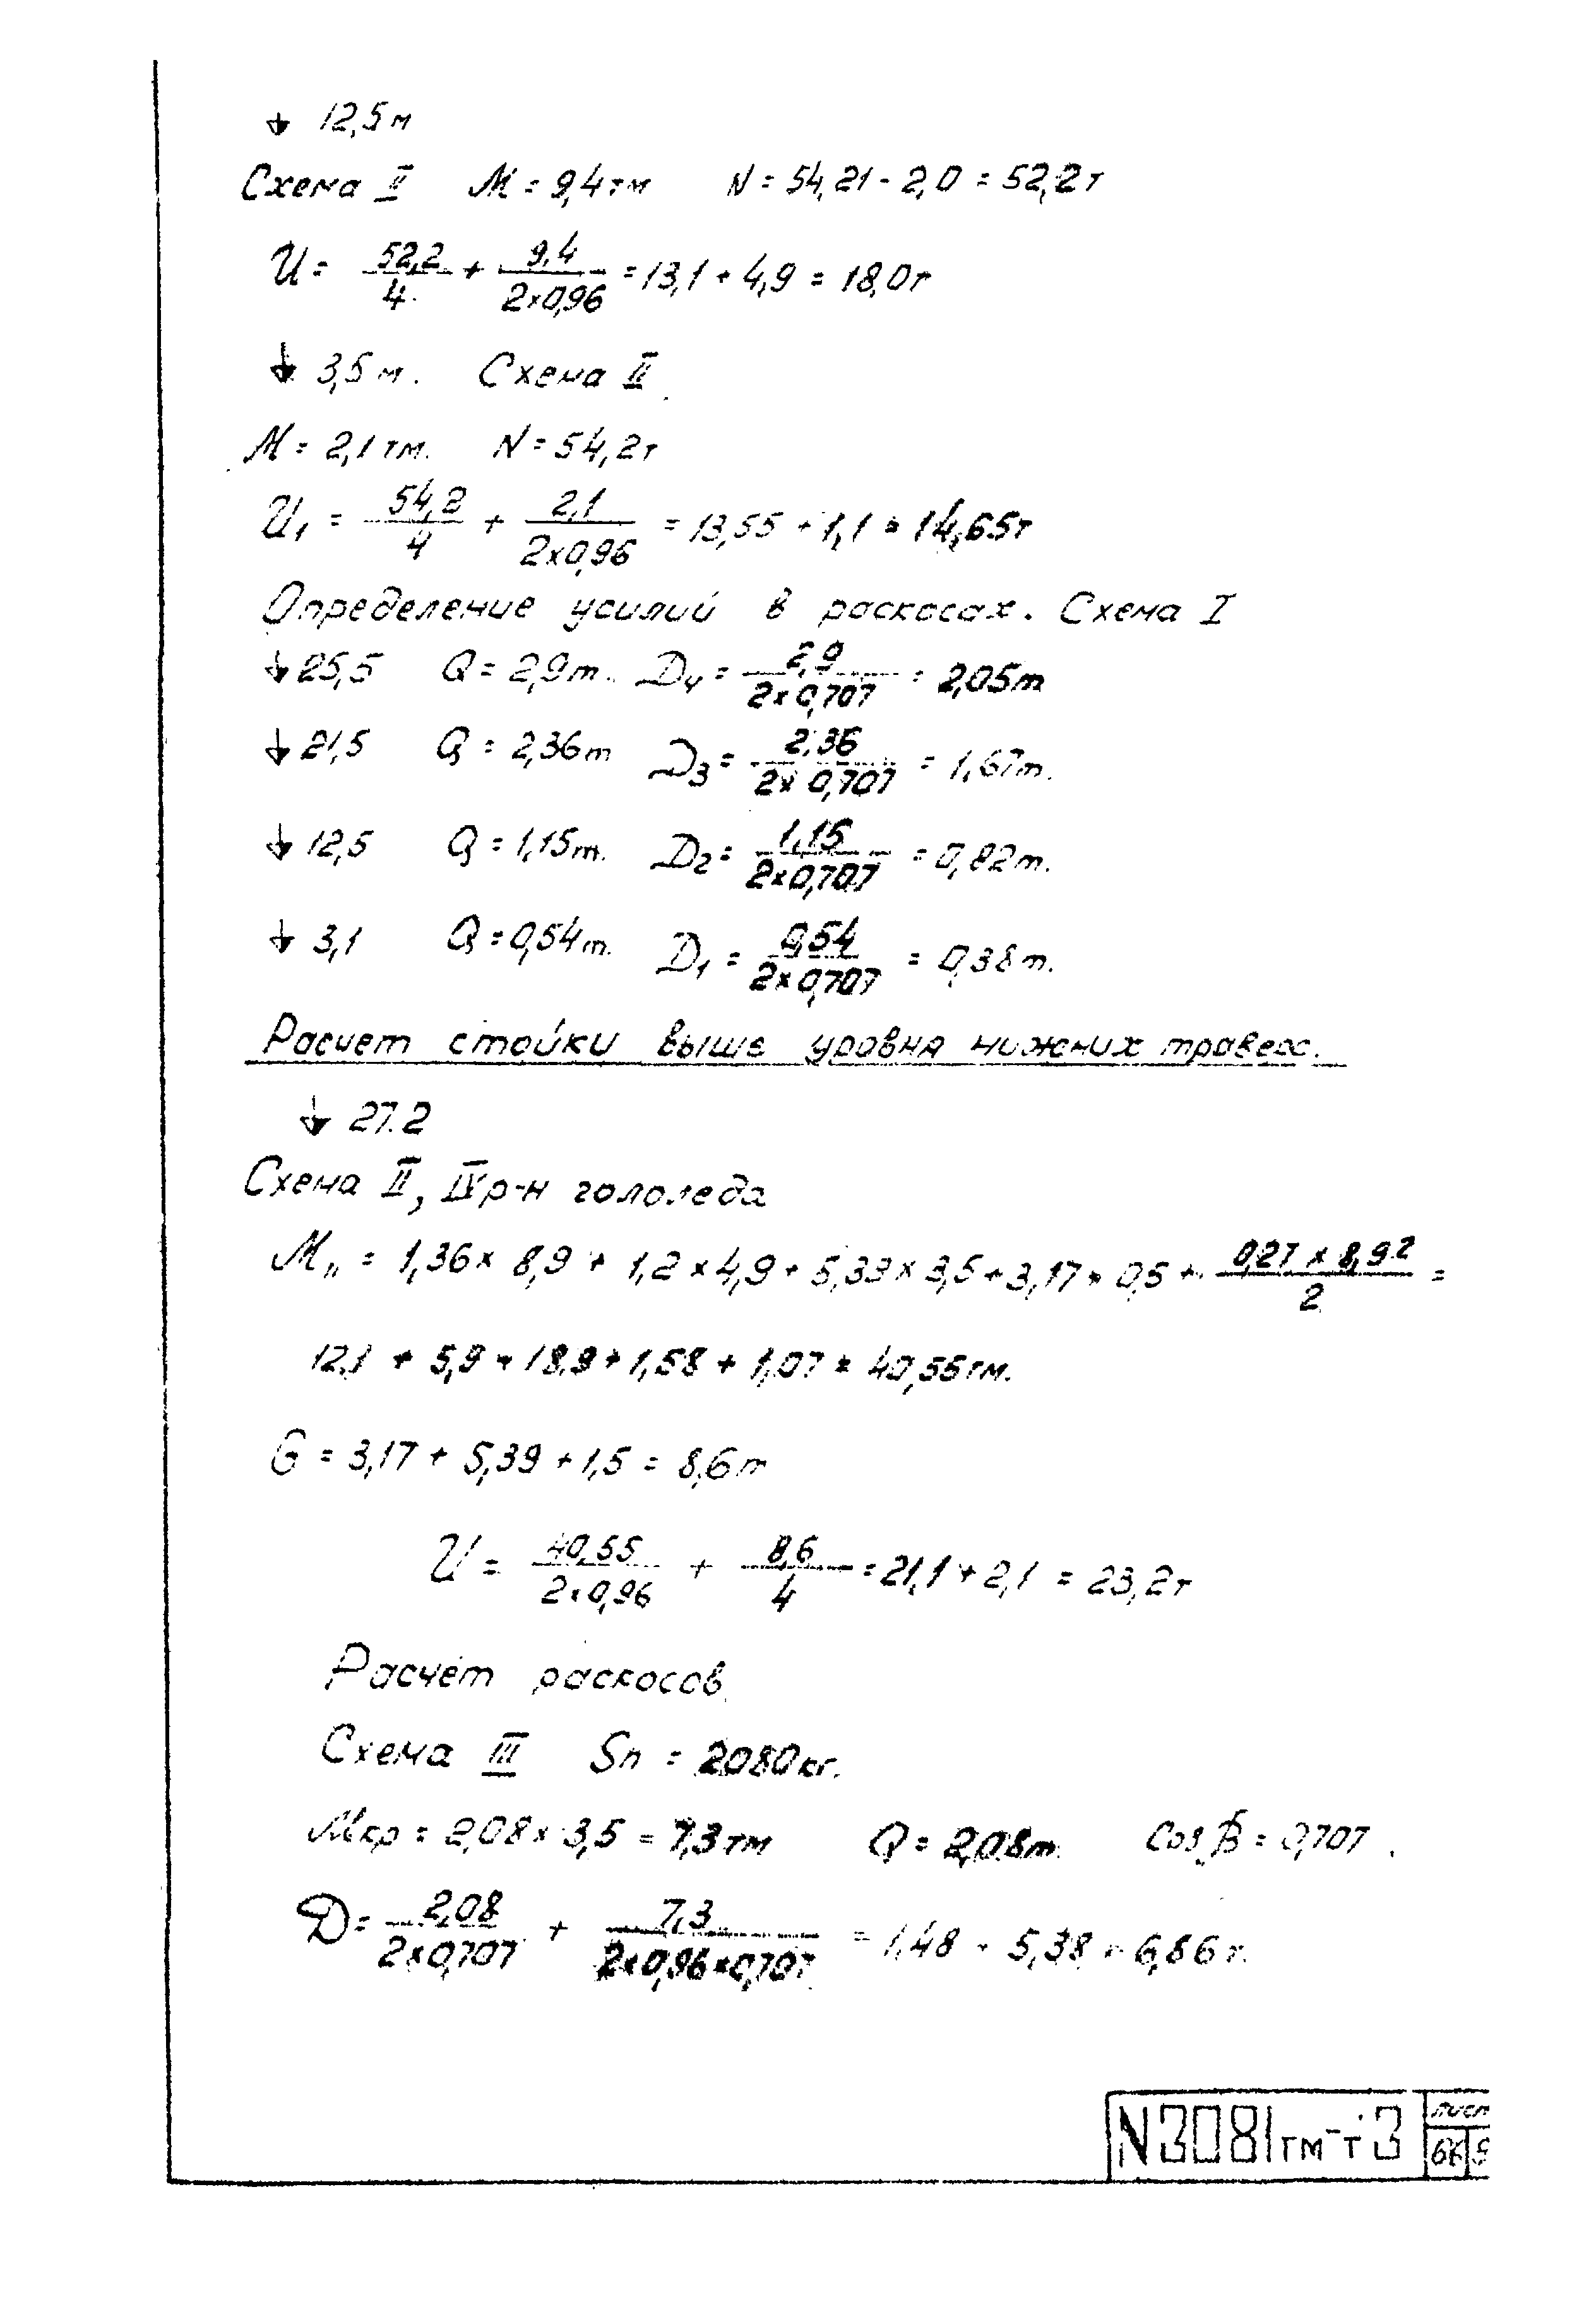 12,5м
Схема II M = 9,4тм N = 54,21 - 2,0 = 52,2т
U = 52,2/4 + 9,4/2×0,96 = 13,1 + 4,9 = 18,0т
3,5м. Схема II
M = 2,1тм. N = 54,2т
U1 = 54,2/4 + 2,1/2×0,96 = 13,55 + 1,1 = 14,65т
Определение усилий в раскосах. Схема I
25,5 Q = 2,9т. D4 = 2,9/2×0,707 = 2,05т
21,5 Q = 2,36т D3 = 2,36/2×0,707 = 1,67т.
12,5 Q = 1,15т. D2 = 1,15/2×0,707 = 0,82т.
3,1 Q = 0,54т. D1 = 0,54/2×0,707 = 0,38т.
Расчет стойки выше уровня нижних траверс.
27.2
Схема II, IV р-н гололеда
Mп = 1,36× 8,9 + 1,2×4,9 + 5,39×3,5 + 3,17×0,5 + 0,27×8,9²/2 =
12,1 + 5,9 + 18,9 + 1,58 + 1,07 = 40,55тм.
G = 3,17 + 5,39 + 1,5 = 8,6т
U = 40,55/2×0,96 + 8,6/4 = 21,1 + 2,1 = 23,2т
Расчет раскосов
Схема III Sп = 2080кг.
Mкр = 2,08×3,5 = 7,3тм Q = 2,08т. Cosβ = 0,707
D = 2,08/2×0,707 + 7,3/2×0,96×0,707 = 1,48 + 5,38 = 6,86т.
N3081тм-т3 лист